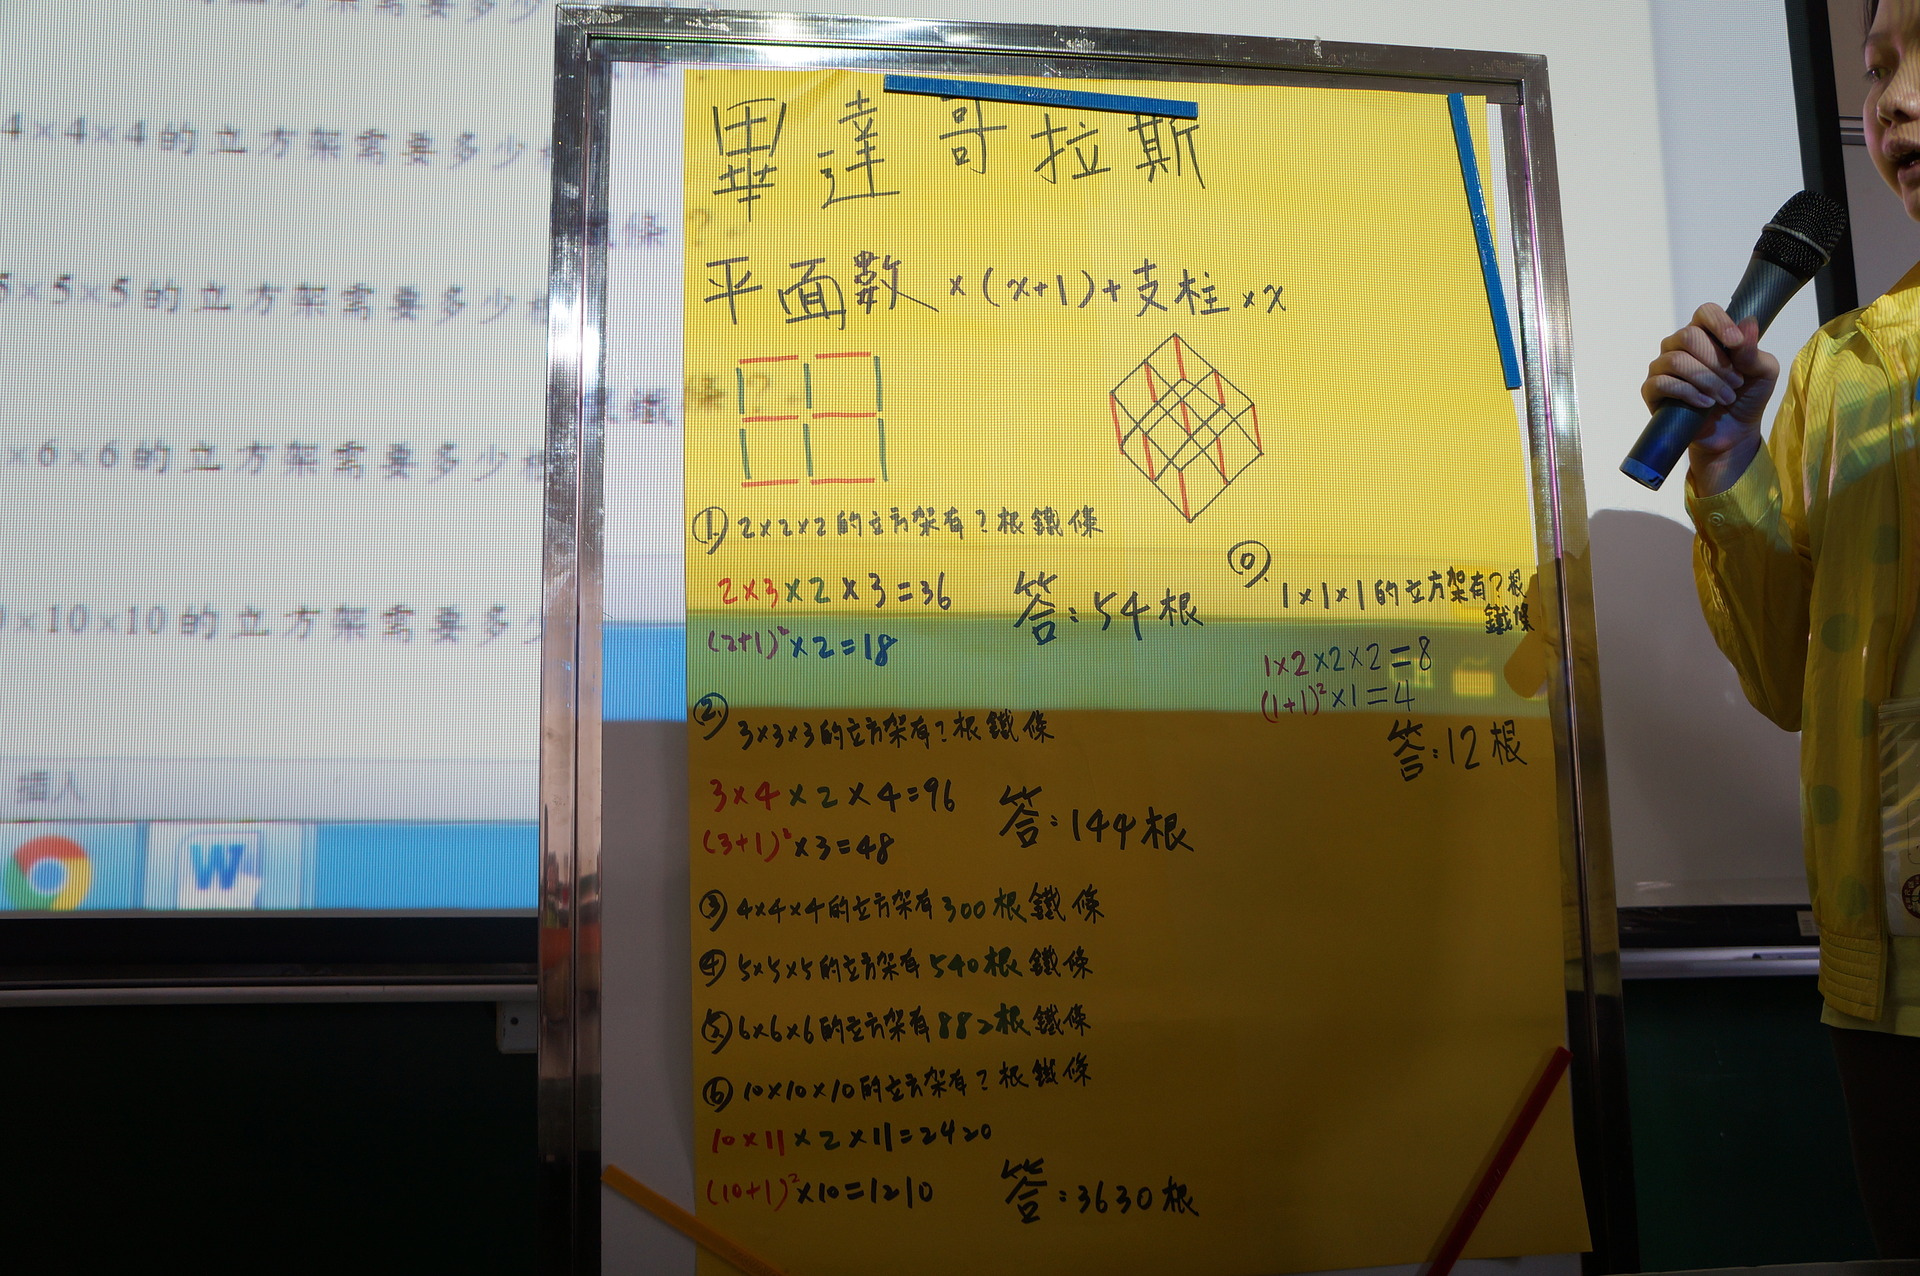 4×4×4的立方架需要多少
條？
5×5×5的立方架需要多少
鐵條？
×6×6的立方架需要多少
×10×10的立方架需要多少
插入
W
畢達哥拉斯
平面數×(x+1)+支柱×x
① 2×2×2的立方架有?根鐵條
2×3×2×3=36
(2+1)²×2=18
答:54根
⓪ 1×1×1的立方架有?根
鐵條
1×2×2×2=8
(1+1)²×1=4
答:12根
② 3×3×3的立方架有?根鐵條
3×4×2×4=96
(3+1)²×3=48
答:144根
③ 4×4×4的立方架有300根鐵條
④ 5×5×5的立方架有540根鐵條
⑤ 6×6×6的立方架有882根鐵條
⑥ 10×10×10的立方架有?根鐵條
10×11×2×11=2420
(10+1)²×10=1210
答:3630根